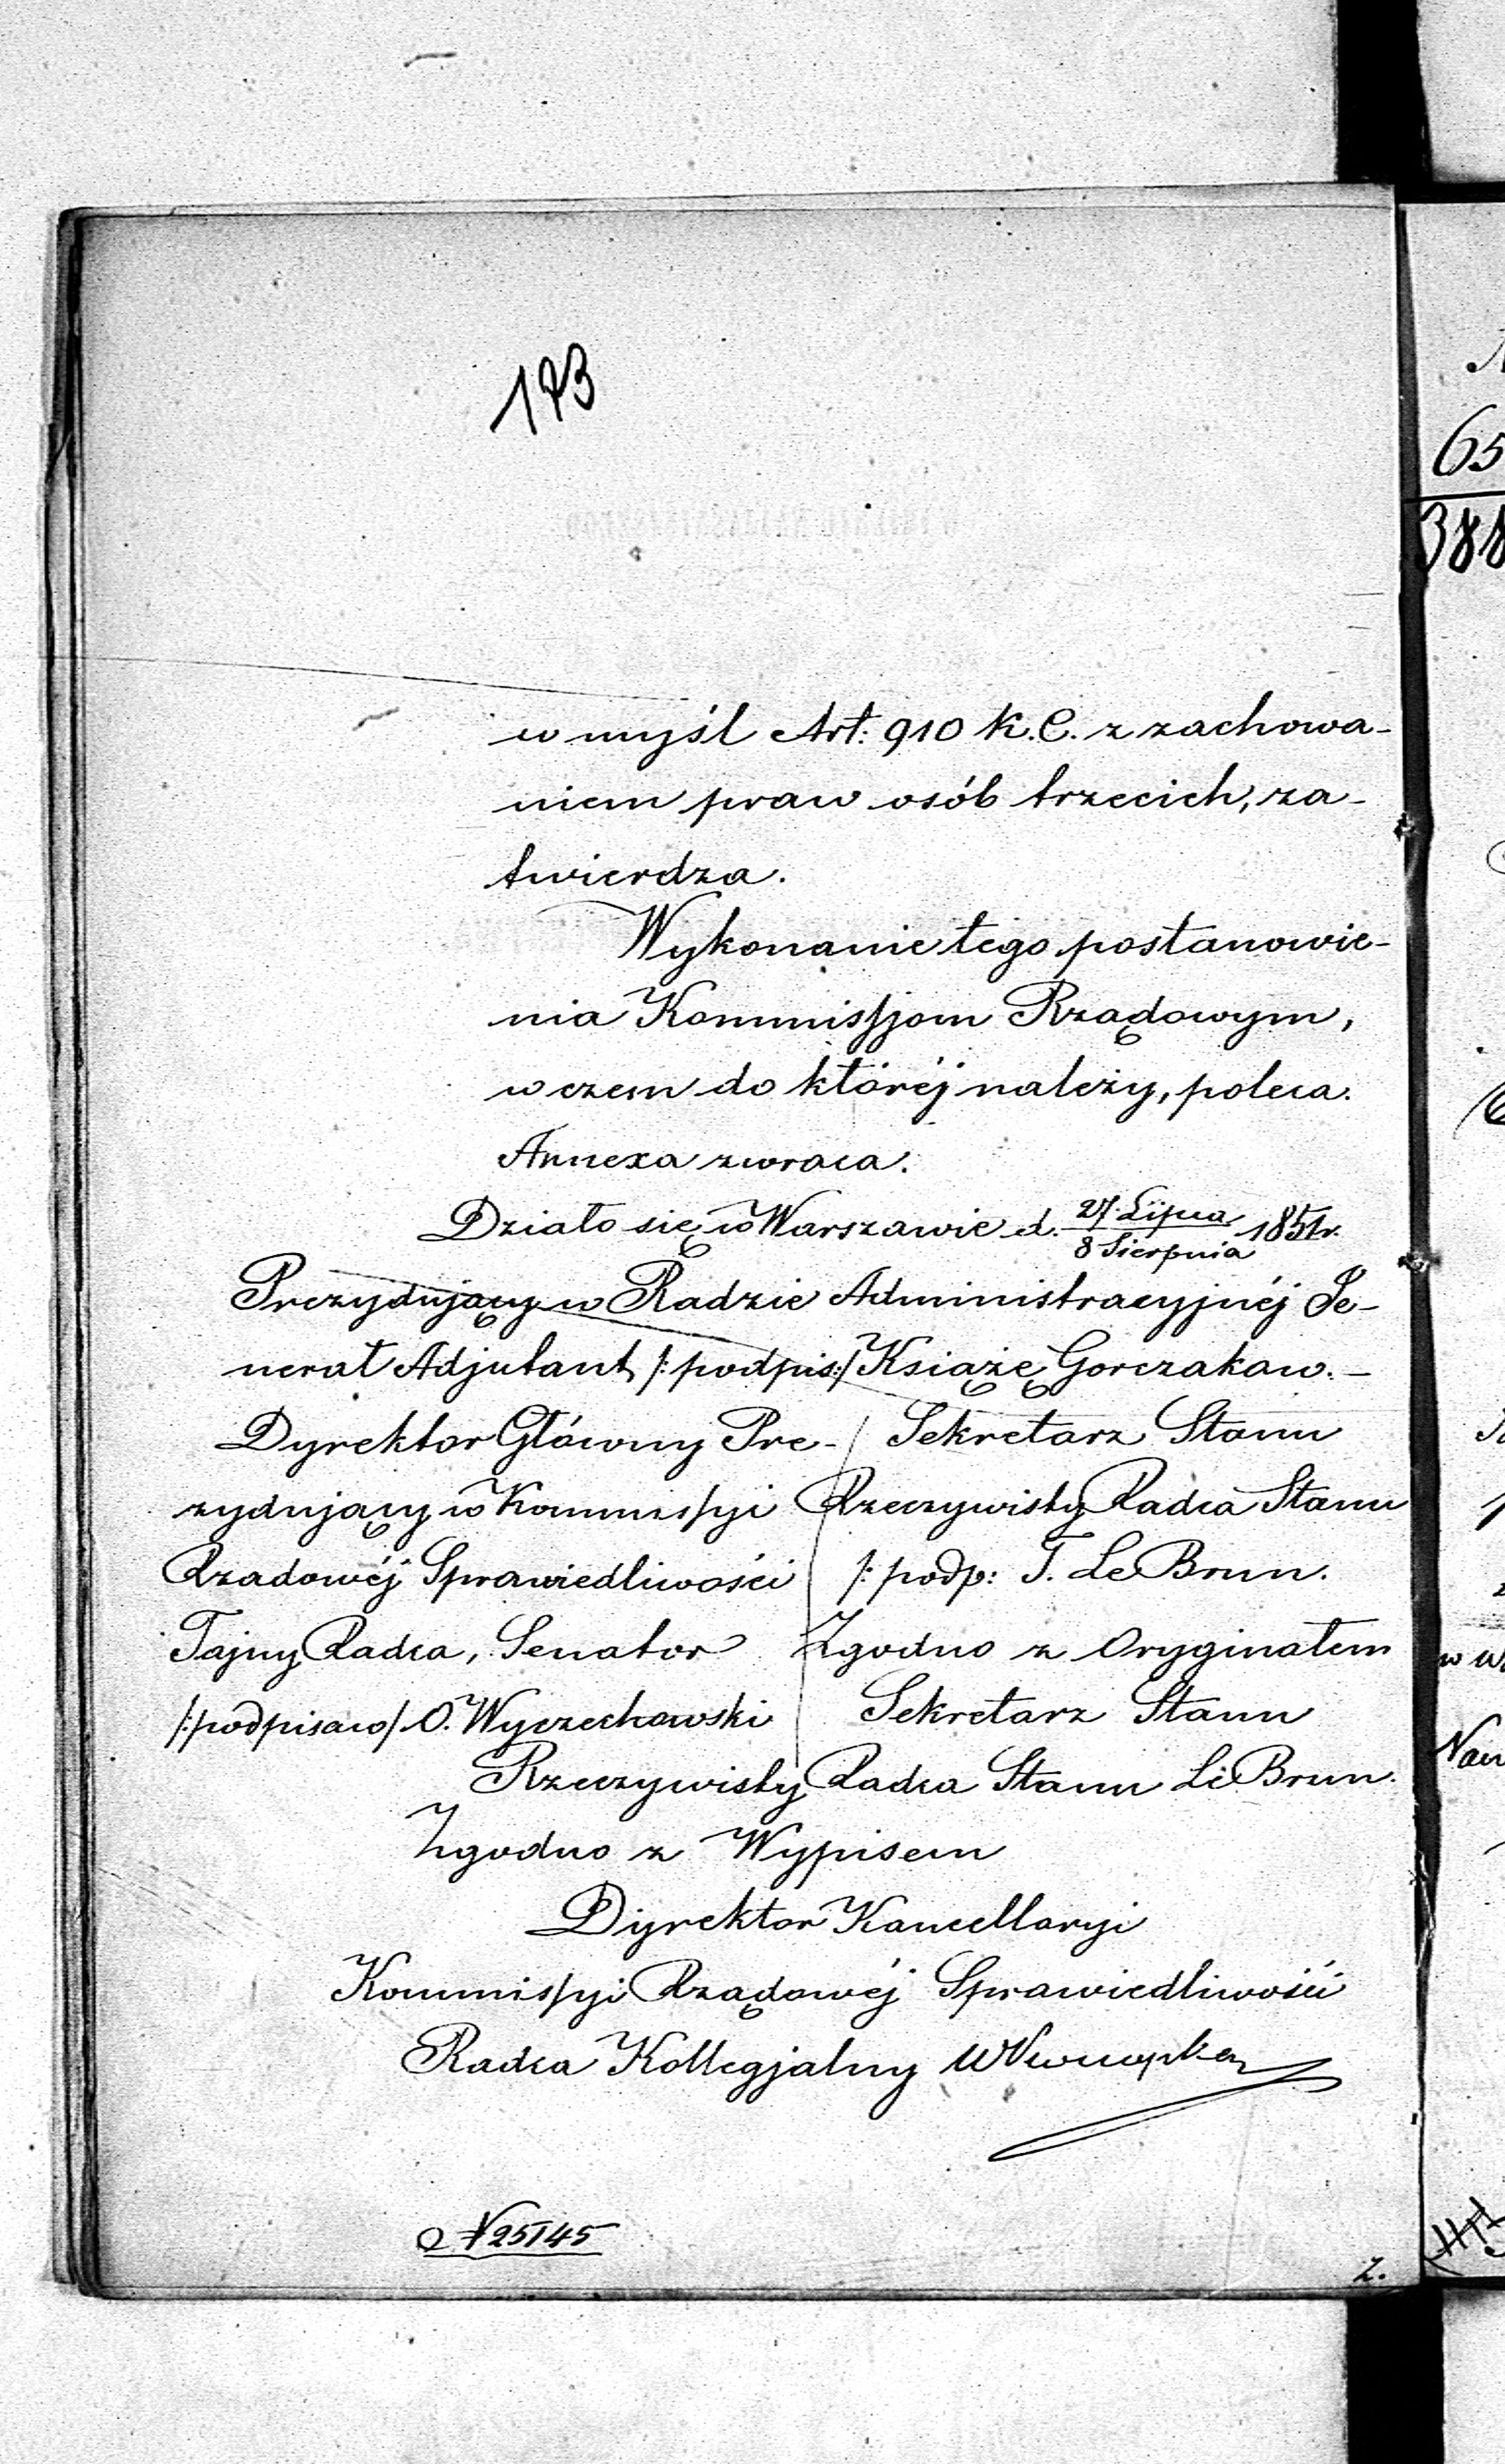 173
w myśl Art: 910 K.C. z zachowa-
niem praw osób trzecich, za-
twierdza.
Wykonanie tego postanowie-
nia Kommissjom Rządowym,
w czem do któréj należy, poleca.
Annexa zwraca.
Działo się w Warszawie d. 27 Lipca / 8 Sierpnia 1851 r.
Prezydujący w Radzie Administracyjnéj Je-
nerał Adjutant /:podpis:/ Książę Gorczakow.-
Dyrektor Główny Pre-
zydujący w Kommissyi
Rządowéj Sprawiedliwości
Tajny Radca, Senator
/:podpisano/ O. Wyczechowski
Sekretarz Stanu
Rzeczywisty Radca Stanu
/:podp: T. Le Brun.
Zgodno z Oryginałem
Sekretarz Stanu
Rzeczywisty Radca Stanu Le Brun.
Zgodno z Wypisem
Dyrektor Kancellaryi
Kommissyi Rządowéj Sprawiedliwości
Radca Kollegjalny
N 25145
65
388